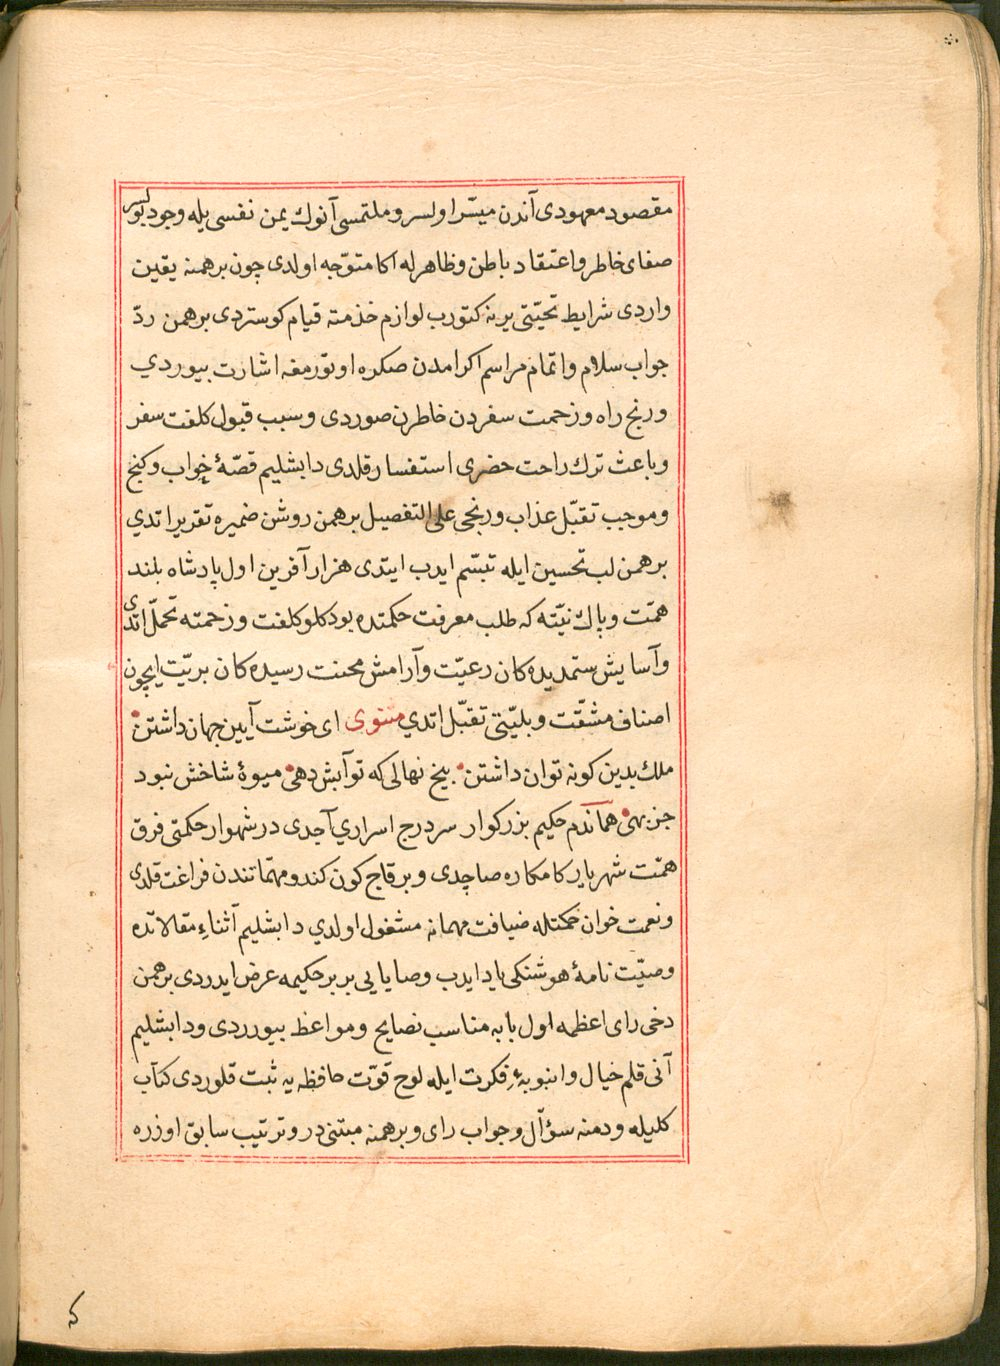 مقصود معهودی آندن میسّر اولسر و ملتمسی آنوك یمن نفسی یله وجود بولسر
صفای خاطر و اعتقاد باطن و ظاهرله اكا متوّجه اولدی چون برهمنه یقین
واردی شرایط تحیّتی یرینه كتورب لوازم خذمته قیام كوستردی برهمن ردّ
جواب سلام و اتمام مراسم اكرامدن صكره اوتورمغه اشارت بیوردي
و رنج راه و زحمت سفردن خاطرن صوردی و سبب قبول كلفت سفر
و باعث ترك راحت حضری استفسار قلدی دابشلیم قصّهٔ خواب و كنج
و موجب تقبّل عذاب و رنجی علی التفصیل برهمن روشن ضمیره تقریر اتدي
برهمن لب تحسین ایله تبسّم ایدب ایتدی هزار آفرین اول پادشاه بلند
همّت و پاك نیّته كه طلب معرفت حكمتده بودكلو كلفت و زحمته تحمّل اتدی
و آسایش ستمدیده كان رعیّت و آرامش محنت رسیده كان بریّت ایچون
اصناف مشقّت و بلیّتی تقبّل اتدي مثنوی ای خوشت آیین جهان داشتن
ملك بدین كونه توان داشتن بیخ نهالی كه تو آبش دهی میوهٔ شاخش نبود
جز بهی هماندم حكیم بزركوار سر درج اسراري آجدی در شهوار حكمتی فرق
همّت شهریار كامكاره صاچدی و بر قاچ كون كندو مهمّاتندن فراغت قلدی
و نعمت خوان حكمتله ضیافت مهمانه مشغول اولدي دابشلیم آثناء مقالاتده
وصیّت نامهٔ هوشنكی یاد ایدب وصایایی بر بر حكیمه عرض ایدردی برهمن
دخی رای اعظمه اول بابه مناسب نصایح و مواعظ بیوردی و دابشلیم
آنی قلم خیال و انبوبهٔ فكرت ایله لوح قوّت حافظه یه ثبت قلوردی كتاب
كلیله و دمنه سؤآل و جواب رای و برهمنه مبتنی در و ترتیب سابق اوزره
كه